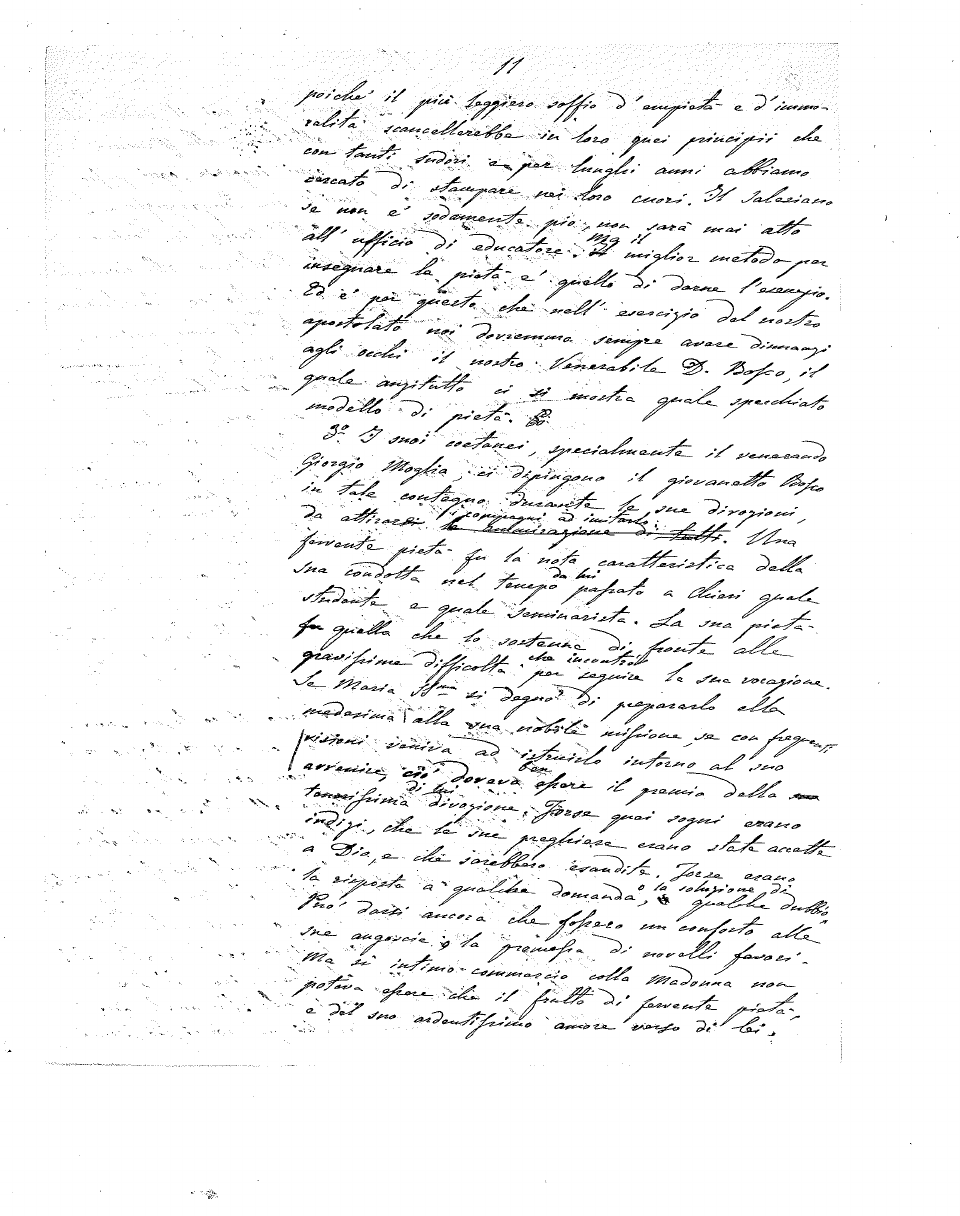 11
poiché il più leggiero soffio d'empietà e d'immo-
ralità scancellerebbe in loro quei principii che
con tanti sudori e per lunghi anni abbiamo
cercato di stampare nei loro cuori. Il Salesiano
se non è sodamente pio, non sarà mai atto
all'ufficio di educatore. Ma il miglior metodo per
insegnare la pietà è quello di darne l'esempio.
Ed è per questo che nell'esercizio del nostro
apostolato noi dovremmo sempre avere dinnanzi
agli occhi il nostro Venerabile D. Bosco, il
quale anzitutto ci si mostra quale specchiato
modello di pietà.
3º. I suoi coetanei, specialmente il venerando
Giorgio Moglia, ci dipingono il giovanetto Bosco
in tale contegno durante le sue divozioni,
i compagni ad imitarlo.
da attirare la ammirazione di tutti. Una
fervente pietà fu la nota caratteristica della
sua condotta nel tempo da lui passato a Chieri quale
studente e quale seminarista. La sua pietà
fu quella che lo sostenne di fronte alle
gravissime difficoltà che incontrò per seguire la sua vocazione.
Se Maria SSma si degnò di prepararlo ella
medesima alla sua nobile missione, se con frequenti
visioni veniva ad istruirlo intorno al suo
avvenire, ciò doveva ben essere il premio della
tenerissima di lui divozione. Forse quei sogni erano
indizi, che le sue preghiere erano state accette
a Dio, e che sarebbero esaudite. Forse erano
la risposta a qualche domanda, o la soluzione di qualche dubbio.
Può darsi ancora che fossero un conforto alle
sue angoscie, o la promessa di novelli favori.
Ma sì intimo commercio colla Madonna non
poteva essere che il frutto di fervente pietà,
e del suo ardentissimo amore verso di lei.